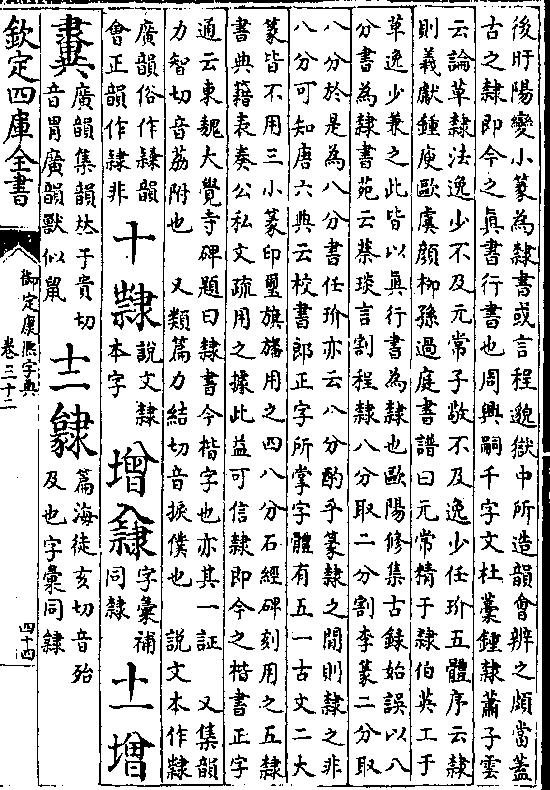 後旴陽變小篆為隸書或言程邈獄中所造韻會辨之頗當蓋
古之隸即今之眞書行書也周興嗣千字文杜藁鍾隸蕭子雲
云論草隸法逸少不及元常子敬不及逸少任玠五體序云隸
則義獻鍾庾歐虞顔柳孫過庭書譜曰元常精于隸伯英工于
草逸少兼之此皆以眞行書為隸也歐陽修集古錄始誤以八
分書為隸書苑云蔡琰言割程隸八分取二分割李篆二分取
八分於是為八分書任玠亦云八分酌乎篆隸之間則隸之非
八分可知唐六典云校書郎正字所掌字體有五一古文二大
篆皆不用三小篆印璽旗旛用之四八分石經碑刻用之五隸
書典籍表奏公私文疏用之據此益可信隸即今之楷書正字
通云東魏大覺寺碑題曰隸書今楷字也亦其一証 又集韻
力智切音荔附也 又類篇力結切音捩僕也 說文本作𨽻
廣韻俗作𨽸韻會正韻作隸非 十 𨽻 說文隸本字 增入 隸 字彙補同隸 十一 增
𤲳 廣韻集韻𠀤于貴切音胃廣韻獸似鼠 十二 𨽾 篇海徒亥切音殆及也字彙同隸
欽定四庫全書
御定康熙字典
卷三十二
四十四